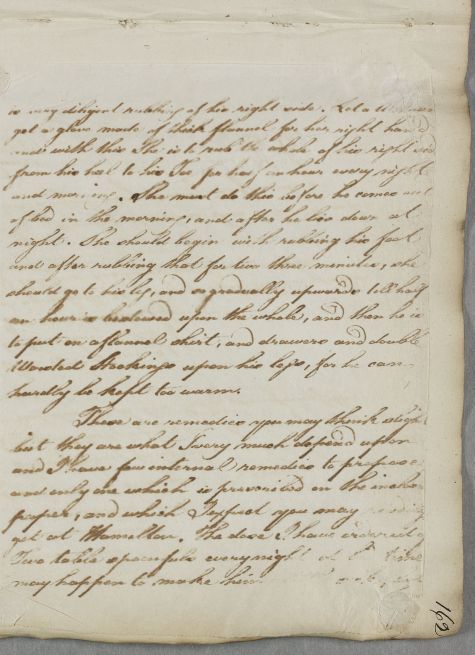 is very diligent rubbing of his right side. Let a Woman
get a glove made of thick flannel for her right hand
and with this She is to rub the whole of his right side
from his heel to his Toe for half an hour every night
and morning. She must do this before he comes out
of bed in the morning, and after he lies down at
night. She should begin with rubbing his foot
and after rubbing that for two three minutes, she
should go to his leg, and so gradually upwards till half
an hour is bestowed upon the whole, and then he is
to put on a flannel shirt, and drawers and double
Worsted Stockings upon his legs, for he can
hardly be kept too warm.
These are remedies you may think slight
but they are what I very much depend upon
and I have few internal remedies to propose
and only one which is prescribed on the inclosed
paper, and which I expect you may
get at Hamilton. The dose I have ordered is
Two table spoonfuls every night at time
may happen to make him
162